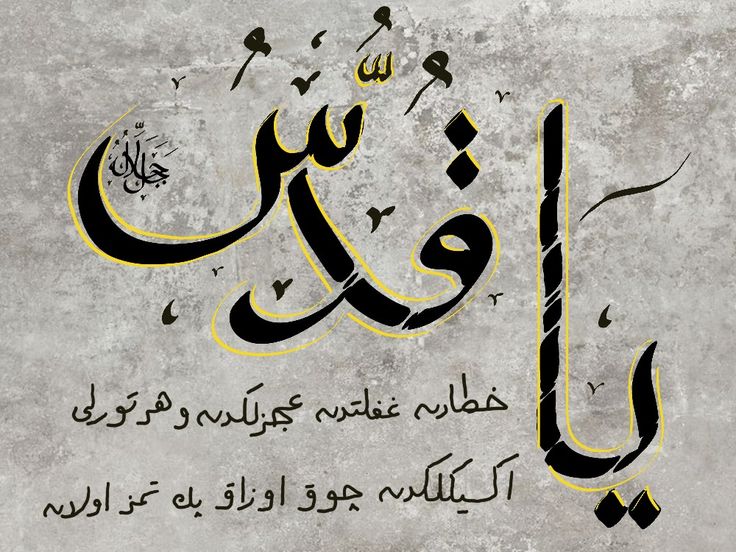 يا قُدُّسُ
جل جلاله
خطادن غفلتدن عجزلكدن و هر تورلى
اكسيكلكدن چوق اوزاق پك تمز اولان